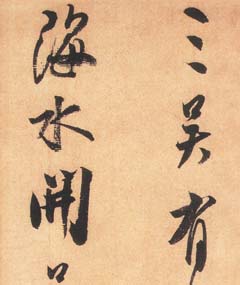 三吴有
海水開口